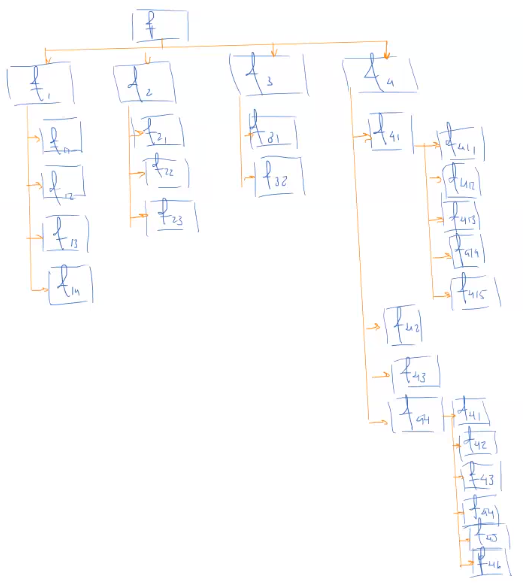 f
f1
f2
f3
f4
f11
f12
f13
f14
f21
f22
f23
f31
f32
f41
f411
f412
f413
f414
f415
f42
f43
f44
f41
f42
f43
f44
f45
f46